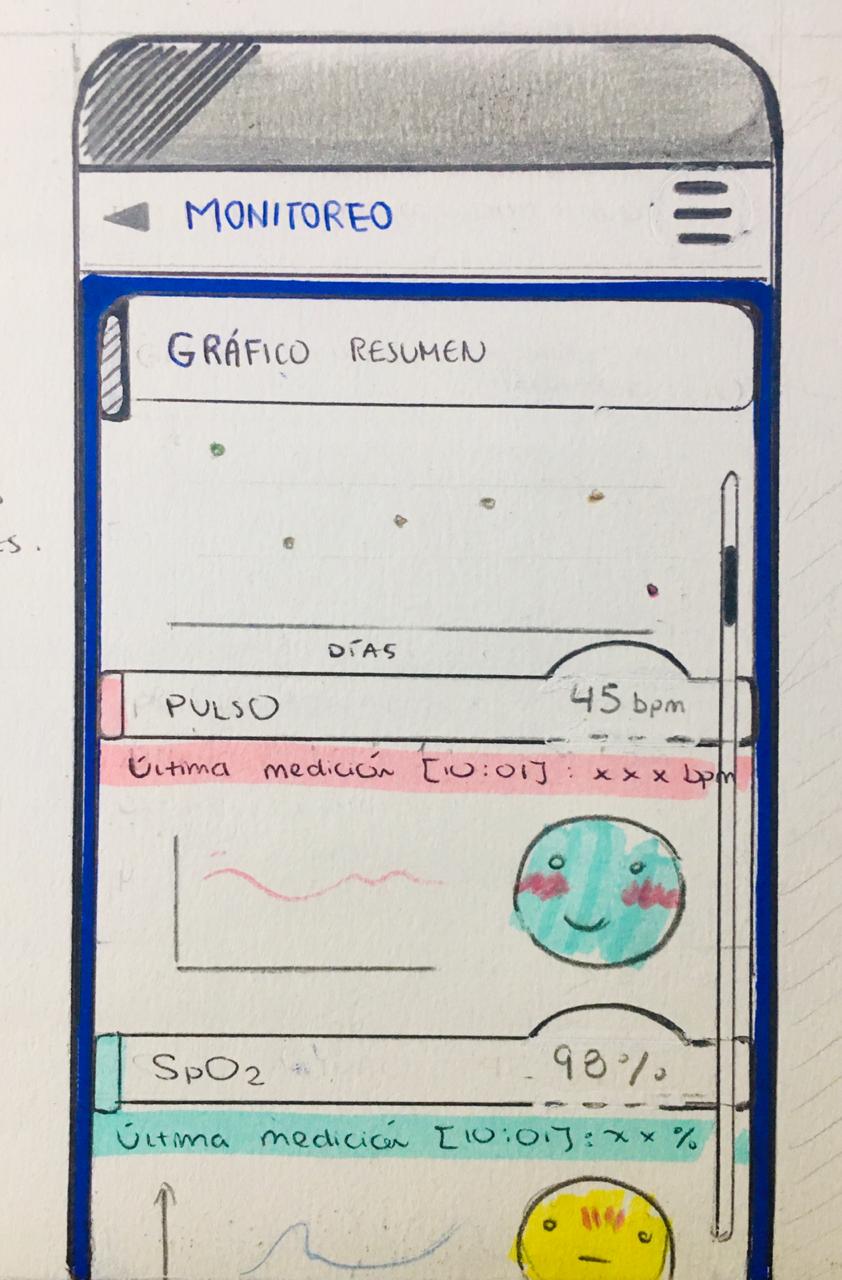 MONITOREO
GRÁFICO RESUMEN
DÍAS
PULSO 45 bpm
Última medición [10:01] : x x x bpm
SpO2 98%
Última medición [10:01] : x x %